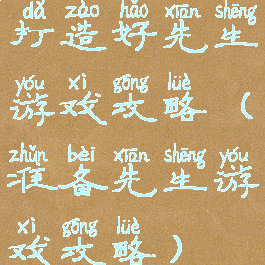 dǎ zào hǎo xiān shēng
打造好先生
yóu xì gōng lüè
游戏攻略（
zhǔn bèi xiān shēng yóu
准备先生游
xì gōng lüè
戏攻略）